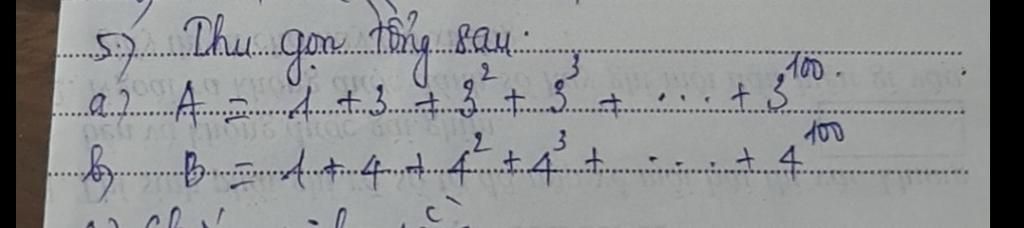 5.) Thu gọn tổng sau.
a) A = 1 + 3 + 3² + 3³ + ... + 3¹⁰⁰.
b) B = 1 + 4 + 4² + 4³ + ... + 4¹⁰⁰